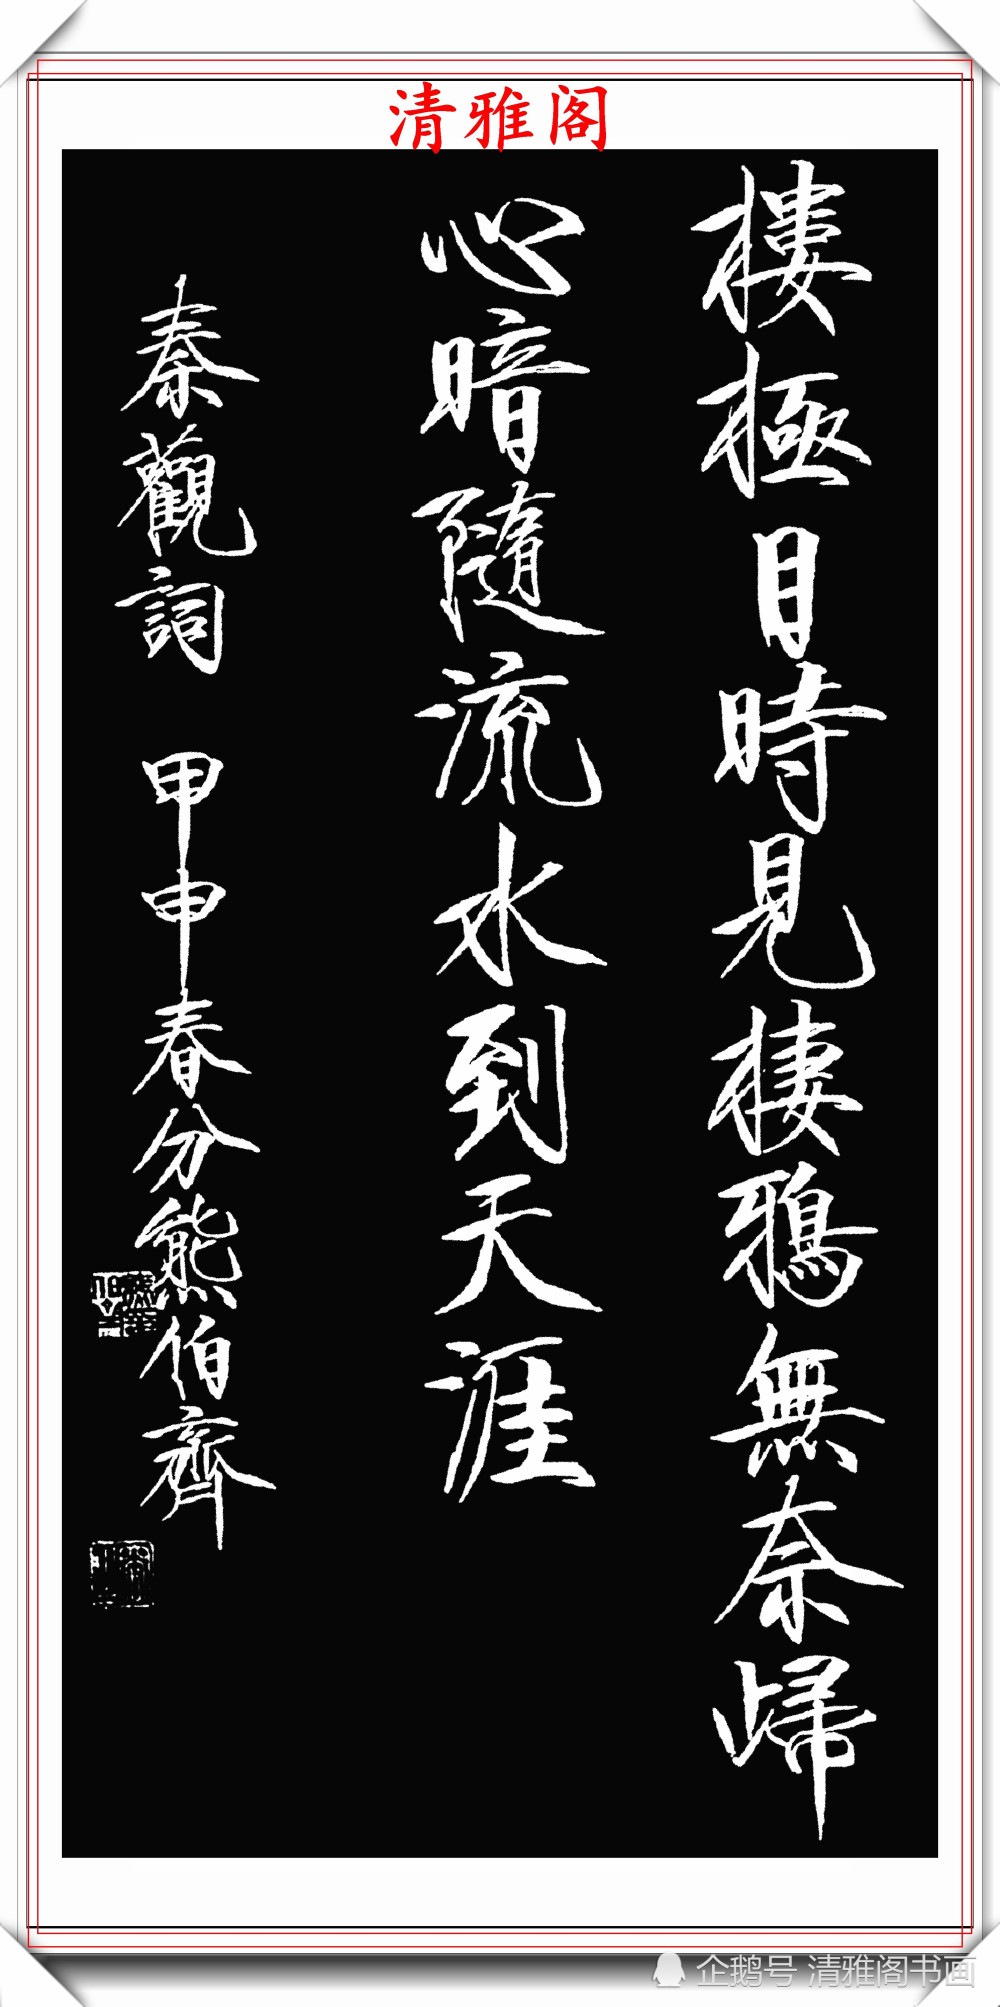 清雅阁
樓極目時見棲鴉無奈歸
心暗隨流水到天涯
秦觀詞 甲申春分熊伯齊
企鹅号 清雅阁书画